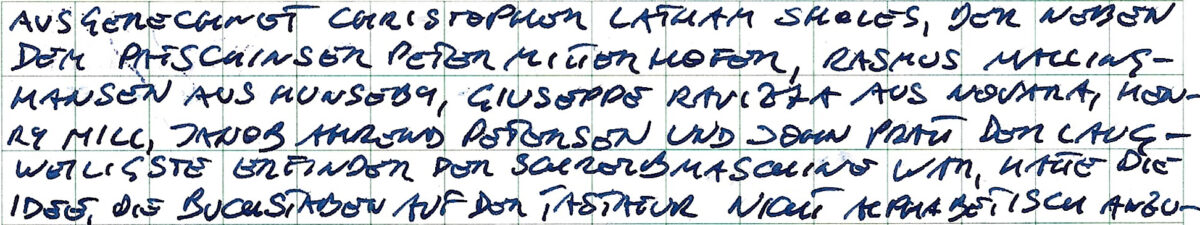 AUSGERECHNET CHRISTOPHER LATHAM SHOLES, DER NEBEN
DEM PARTSCHINSER PETER MITTERHOFER, RASMUS MALLING-
HANSEN AUS HUNSEBY, GIUSEPPE RAVIZZA AUS NOVARA, HEN-
RY MILL, JAKOB AHREND PETERSEN UND JOHN PRATT DER LANG-
WEILIGSTE ERFINDER DER SCHREIBMASCHINE WAR, HATTE DIE
IDEE, DIE BUCHSTABEN AUF DER TASTATUR NICHT ALPHABETISCH ANZU-